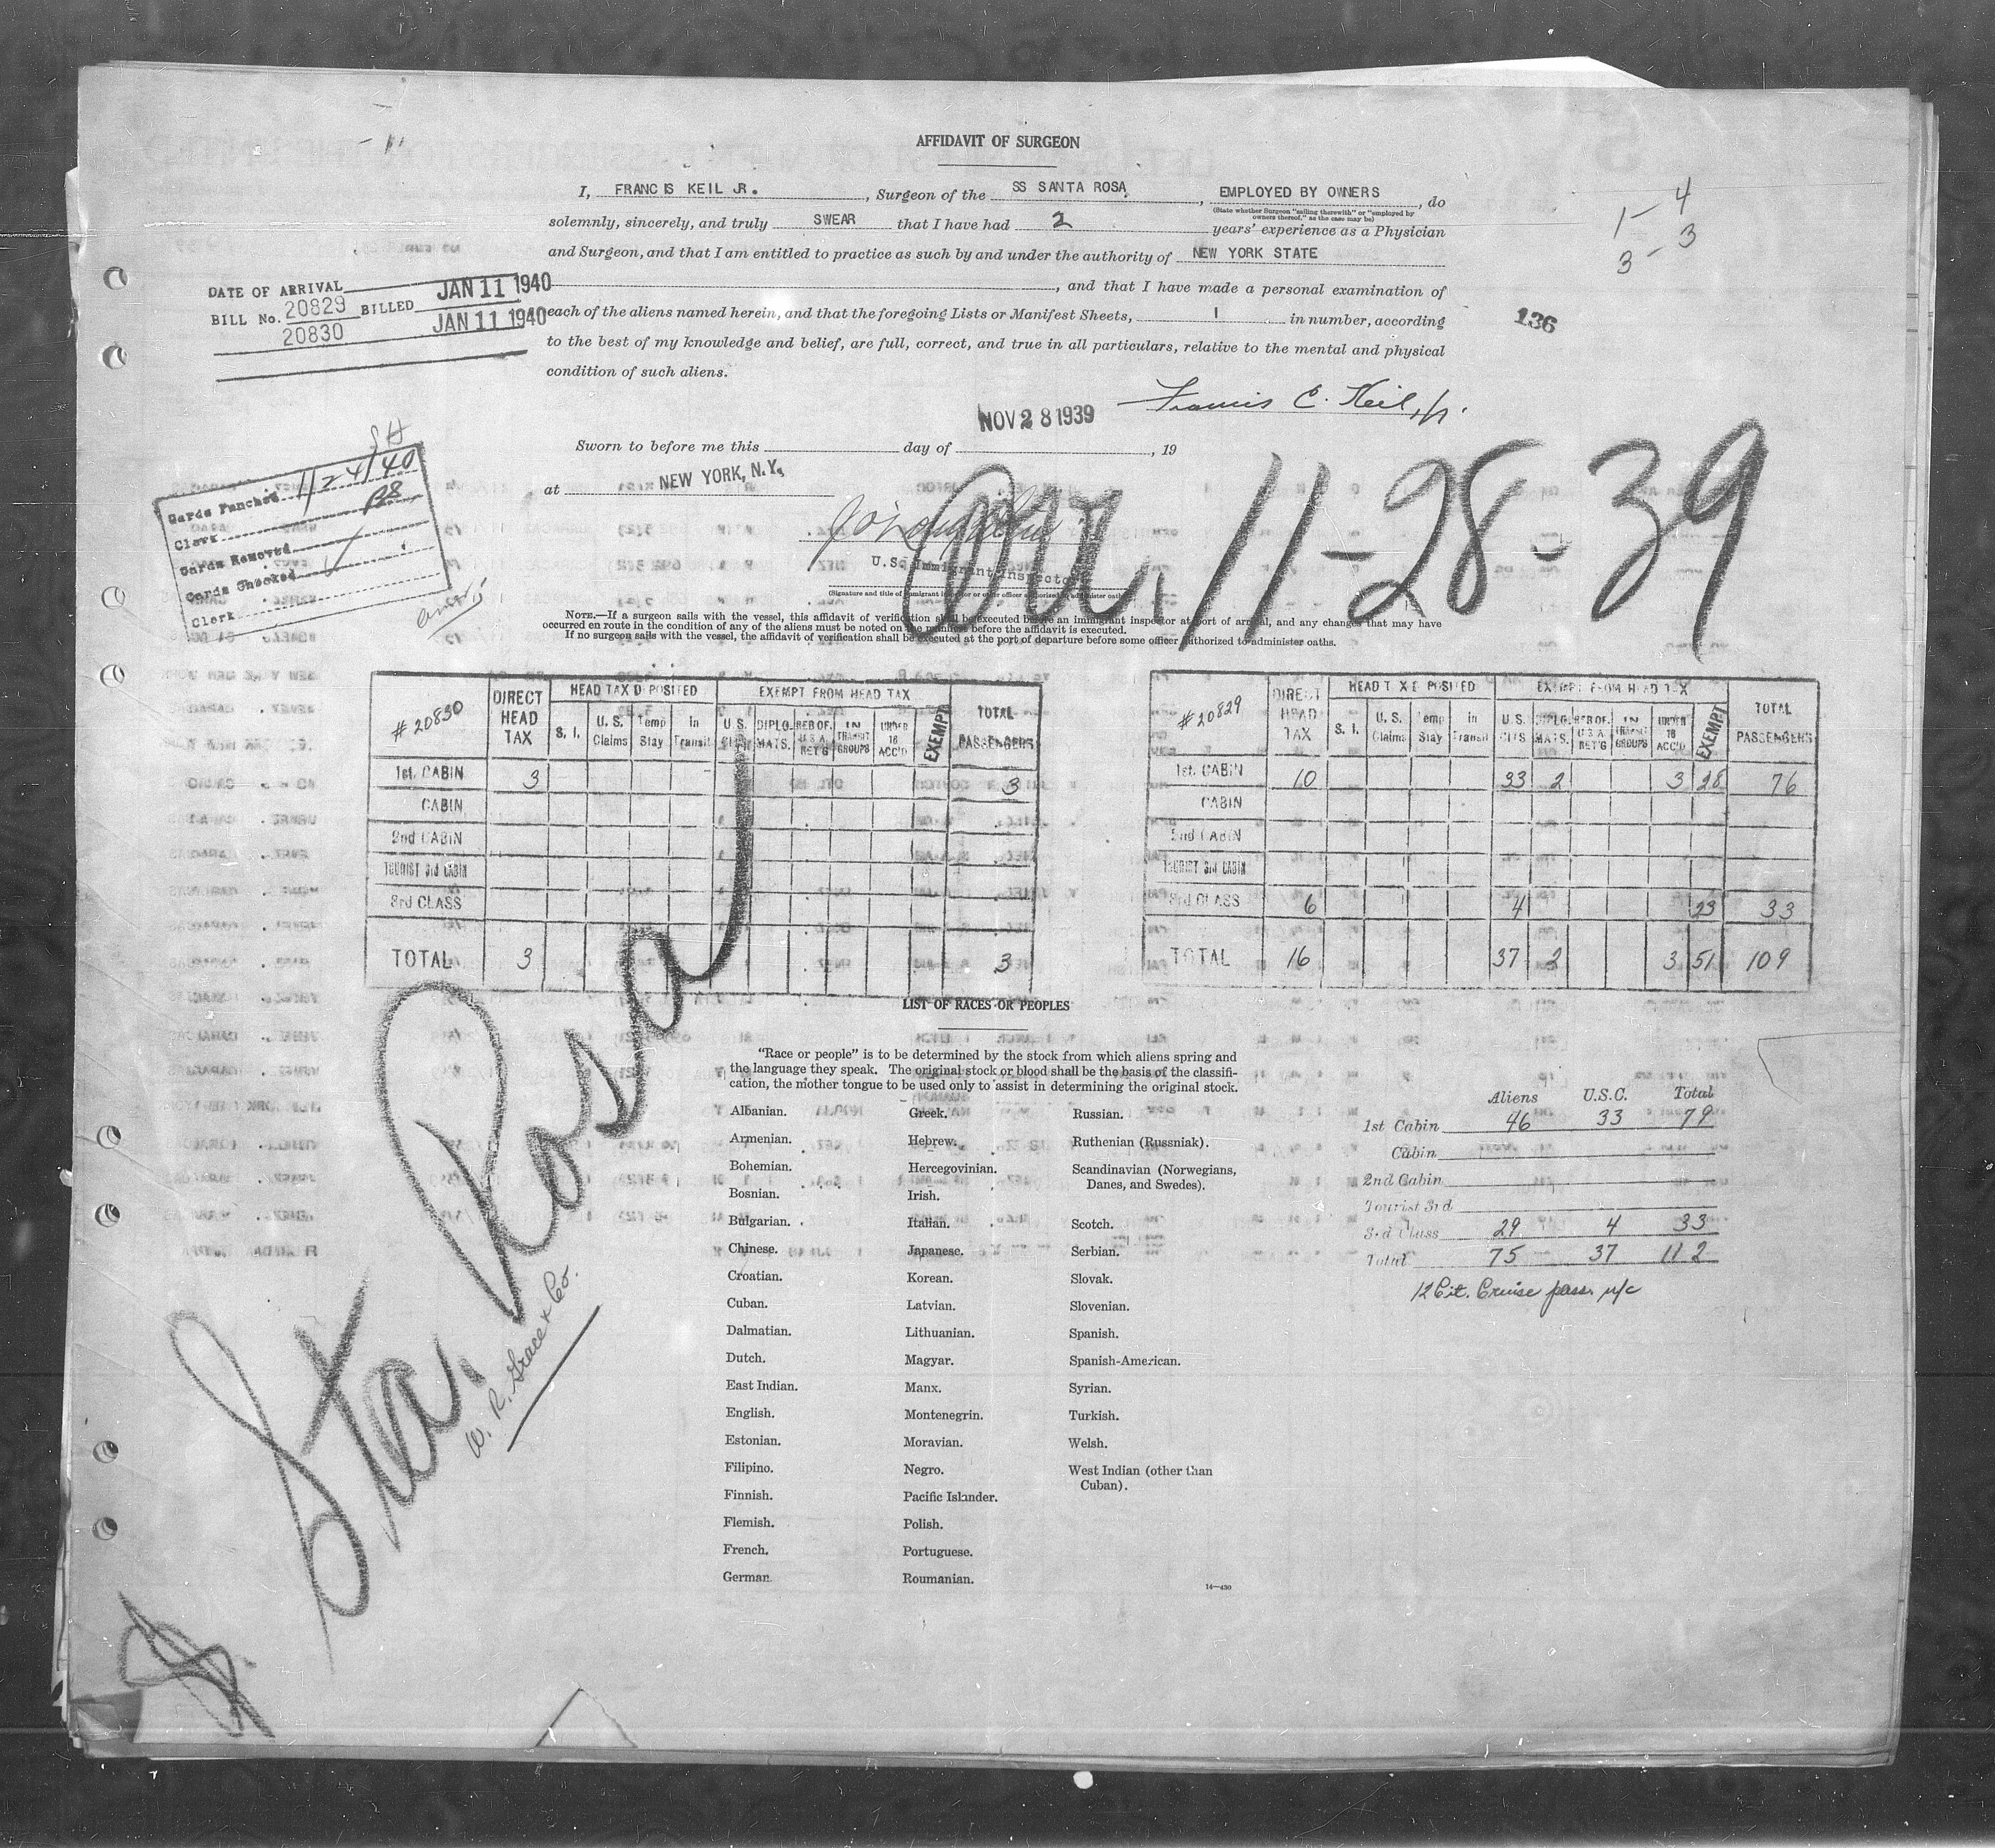 AFFIDAVIT OF SURGEON
I, FRANCIS KEIL JR. , Surgeon of the SS SANTA ROSA , EMPLOYED BY OWNERS , do
(State whether Surgeon "sailing therewith" or "employed by
owners thereof," as the case may be)
solemnly, sincerely, and truly SWEAR that I have had 2 years' experience as a Physician
and Surgeon, and that I am entitled to practice as such by and under the authority of NEW YORK STATE
, and that I have made a personal examination of
each of the aliens named herein, and that the foregoing Lists or Manifest Sheets, 1 in number, according
to the best of my knowledge and belief, are full, correct, and true in all particulars, relative to the mental and physical
condition of such aliens.
1- 4
3- 3
136
DATE OF ARRIVAL JAN 11 1940
BILL No. 20829 BILLED JAN 11 1940
20830
Francis C. Keil, Jr.
NOV 28 1939
Sworn to before me this day of , 19
at NEW YORK, N.Y.
Arr. 11-28-39
U.S. Immigrant Inspector
(Signature and title of immigrant inspector or other officer authorized to administer oaths)
SH
Cards Punched 1/24/40
Clerk B8
Cards Removed
Cards Checked ✓
Clerk
NOTE.—If a surgeon sails with the vessel, this affidavit of verification shall be executed before an immigrant inspector at port of arrival, and any changes that may have
occurred en route in the condition of any of the aliens must be noted on the manifest before the affidavit is executed.
If no surgeon sails with the vessel, the affidavit of verification shall be executed at the port of departure before some officer authorized to administer oaths.
# 20830 DIRECT HEAD TAX HEAD TAX DEPOSITED EXEMPT FROM HEAD TAX TOTAL PASSENGERS
S. I. U. S. Claims Temp Stay In Transit U. S. CITS DIPLO- MATS. RES OF. U.S.A. RET'G IN TRANSIT GROUPS UNDER 16 ACC'D EXEMPT
1st. CABIN 3 3
CABIN
2nd CABIN
TOURIST 3rd CABIN
3rd CLASS
TOTAL 3 3
# 20829 DIRECT HEAD TAX HEAD TAX DEPOSITED EXEMPT FROM HEAD TAX TOTAL PASSENGERS
S. I. U. S. Claims Temp Stay In Transit U. S. CITS DIPLO- MATS. RES OF. U.S.A. RET'G IN TRANSIT GROUPS UNDER 16 ACC'D EXEMPT
1st. CABIN 10 33 2 3 28 76
CABIN
2nd CABIN
TOURIST 3rd CABIN
3rd CLASS 6 4 23 33
TOTAL 16 37 2 3 51 109
Sta. Rosa
W. R. Grace & Co.
LIST OF RACES OR PEOPLES
"Race or people" is to be determined by the stock from which aliens spring and
the language they speak. The original stock or blood shall be the basis of the classifi-
cation, the mother tongue to be used only to assist in determining the original stock.
Albanian.
Armenian.
Bohemian.
Bosnian.
Bulgarian.
Chinese.
Croatian.
Cuban.
Dalmatian.
Dutch.
East Indian.
English.
Estonian.
Filipino.
Finnish.
Flemish.
French.
German.
Greek.
Hebrew.
Hercegovinian.
Irish.
Italian.
Japanese.
Korean.
Latvian.
Lithuanian.
Magyar.
Manx.
Montenegrin.
Moravian.
Negro.
Pacific Islander.
Polish.
Portuguese.
Roumanian.
Russian.
Ruthenian (Russniak).
Scandinavian (Norwegians,
Danes, and Swedes).
Scotch.
Serbian.
Slovak.
Slovenian.
Spanish.
Spanish-American.
Syrian.
Turkish.
Welsh.
West Indian (other than
Cuban).
14—430
Aliens U.S.C. Total
1st Cabin 46 33 79
Cabin
2nd Cabin
Tourist 3rd
3rd Class 29 4 33
Total 75 37 112
12 Cit. Cruise pass. n/c